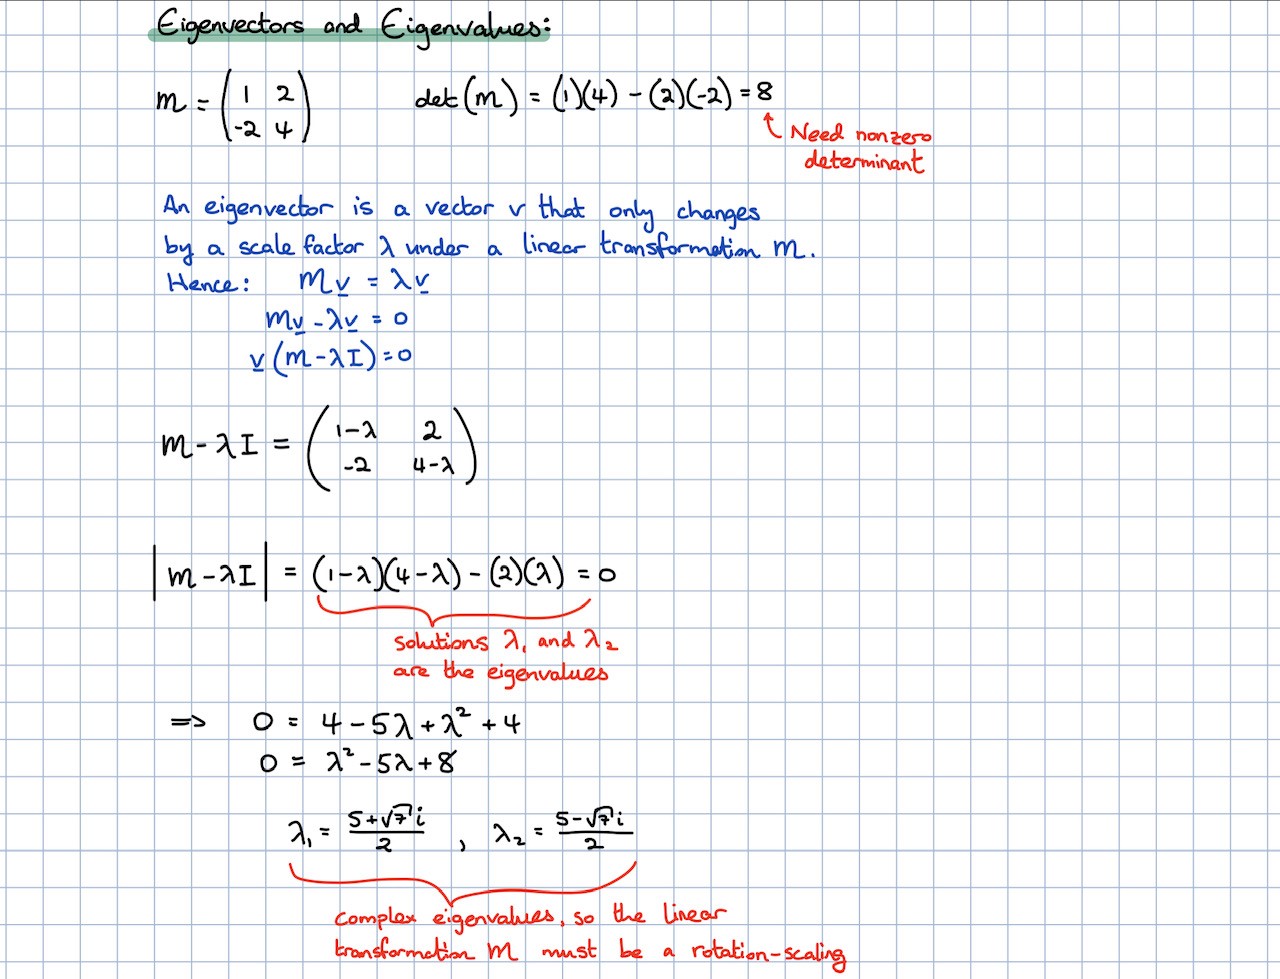 Eigenvectors and Eigenvalues:
m = (1 2
-2 4) det(m) = (1)(4) - (2)(-2) = 8
Need nonzero
determinant
An eigenvector is a vector v that only changes
by a scale factor λ under a linear transformation m.
Hence: Mv = λv
mv - λv = 0
v(m - λI) = 0
m - λI = (1-λ 2
-2 4-λ)
|m - λI| = (1-λ)(4-λ) - (2)(λ) = 0
solutions λ₁ and λ₂
are the eigenvalues
=> 0 = 4 - 5λ + λ² + 4
0 = λ² - 5λ + 8
λ₁ = (5+√7 i)/2 , λ₂ = (5-√7 i)/2
complex eigenvalues, so the linear
transformation M must be a rotation-scaling